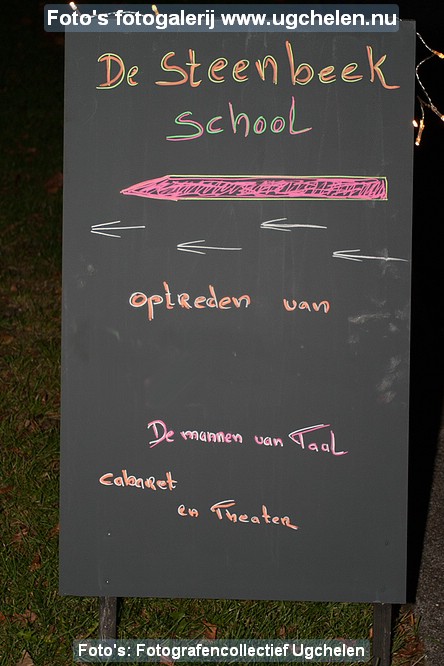 Foto's fotogalerij www.ugchelen.nu
De Steenbeek
School
optreden van
De mannen van Taal
cabaret
en Theater
Foto's: Fotografencollectief Ugchelen